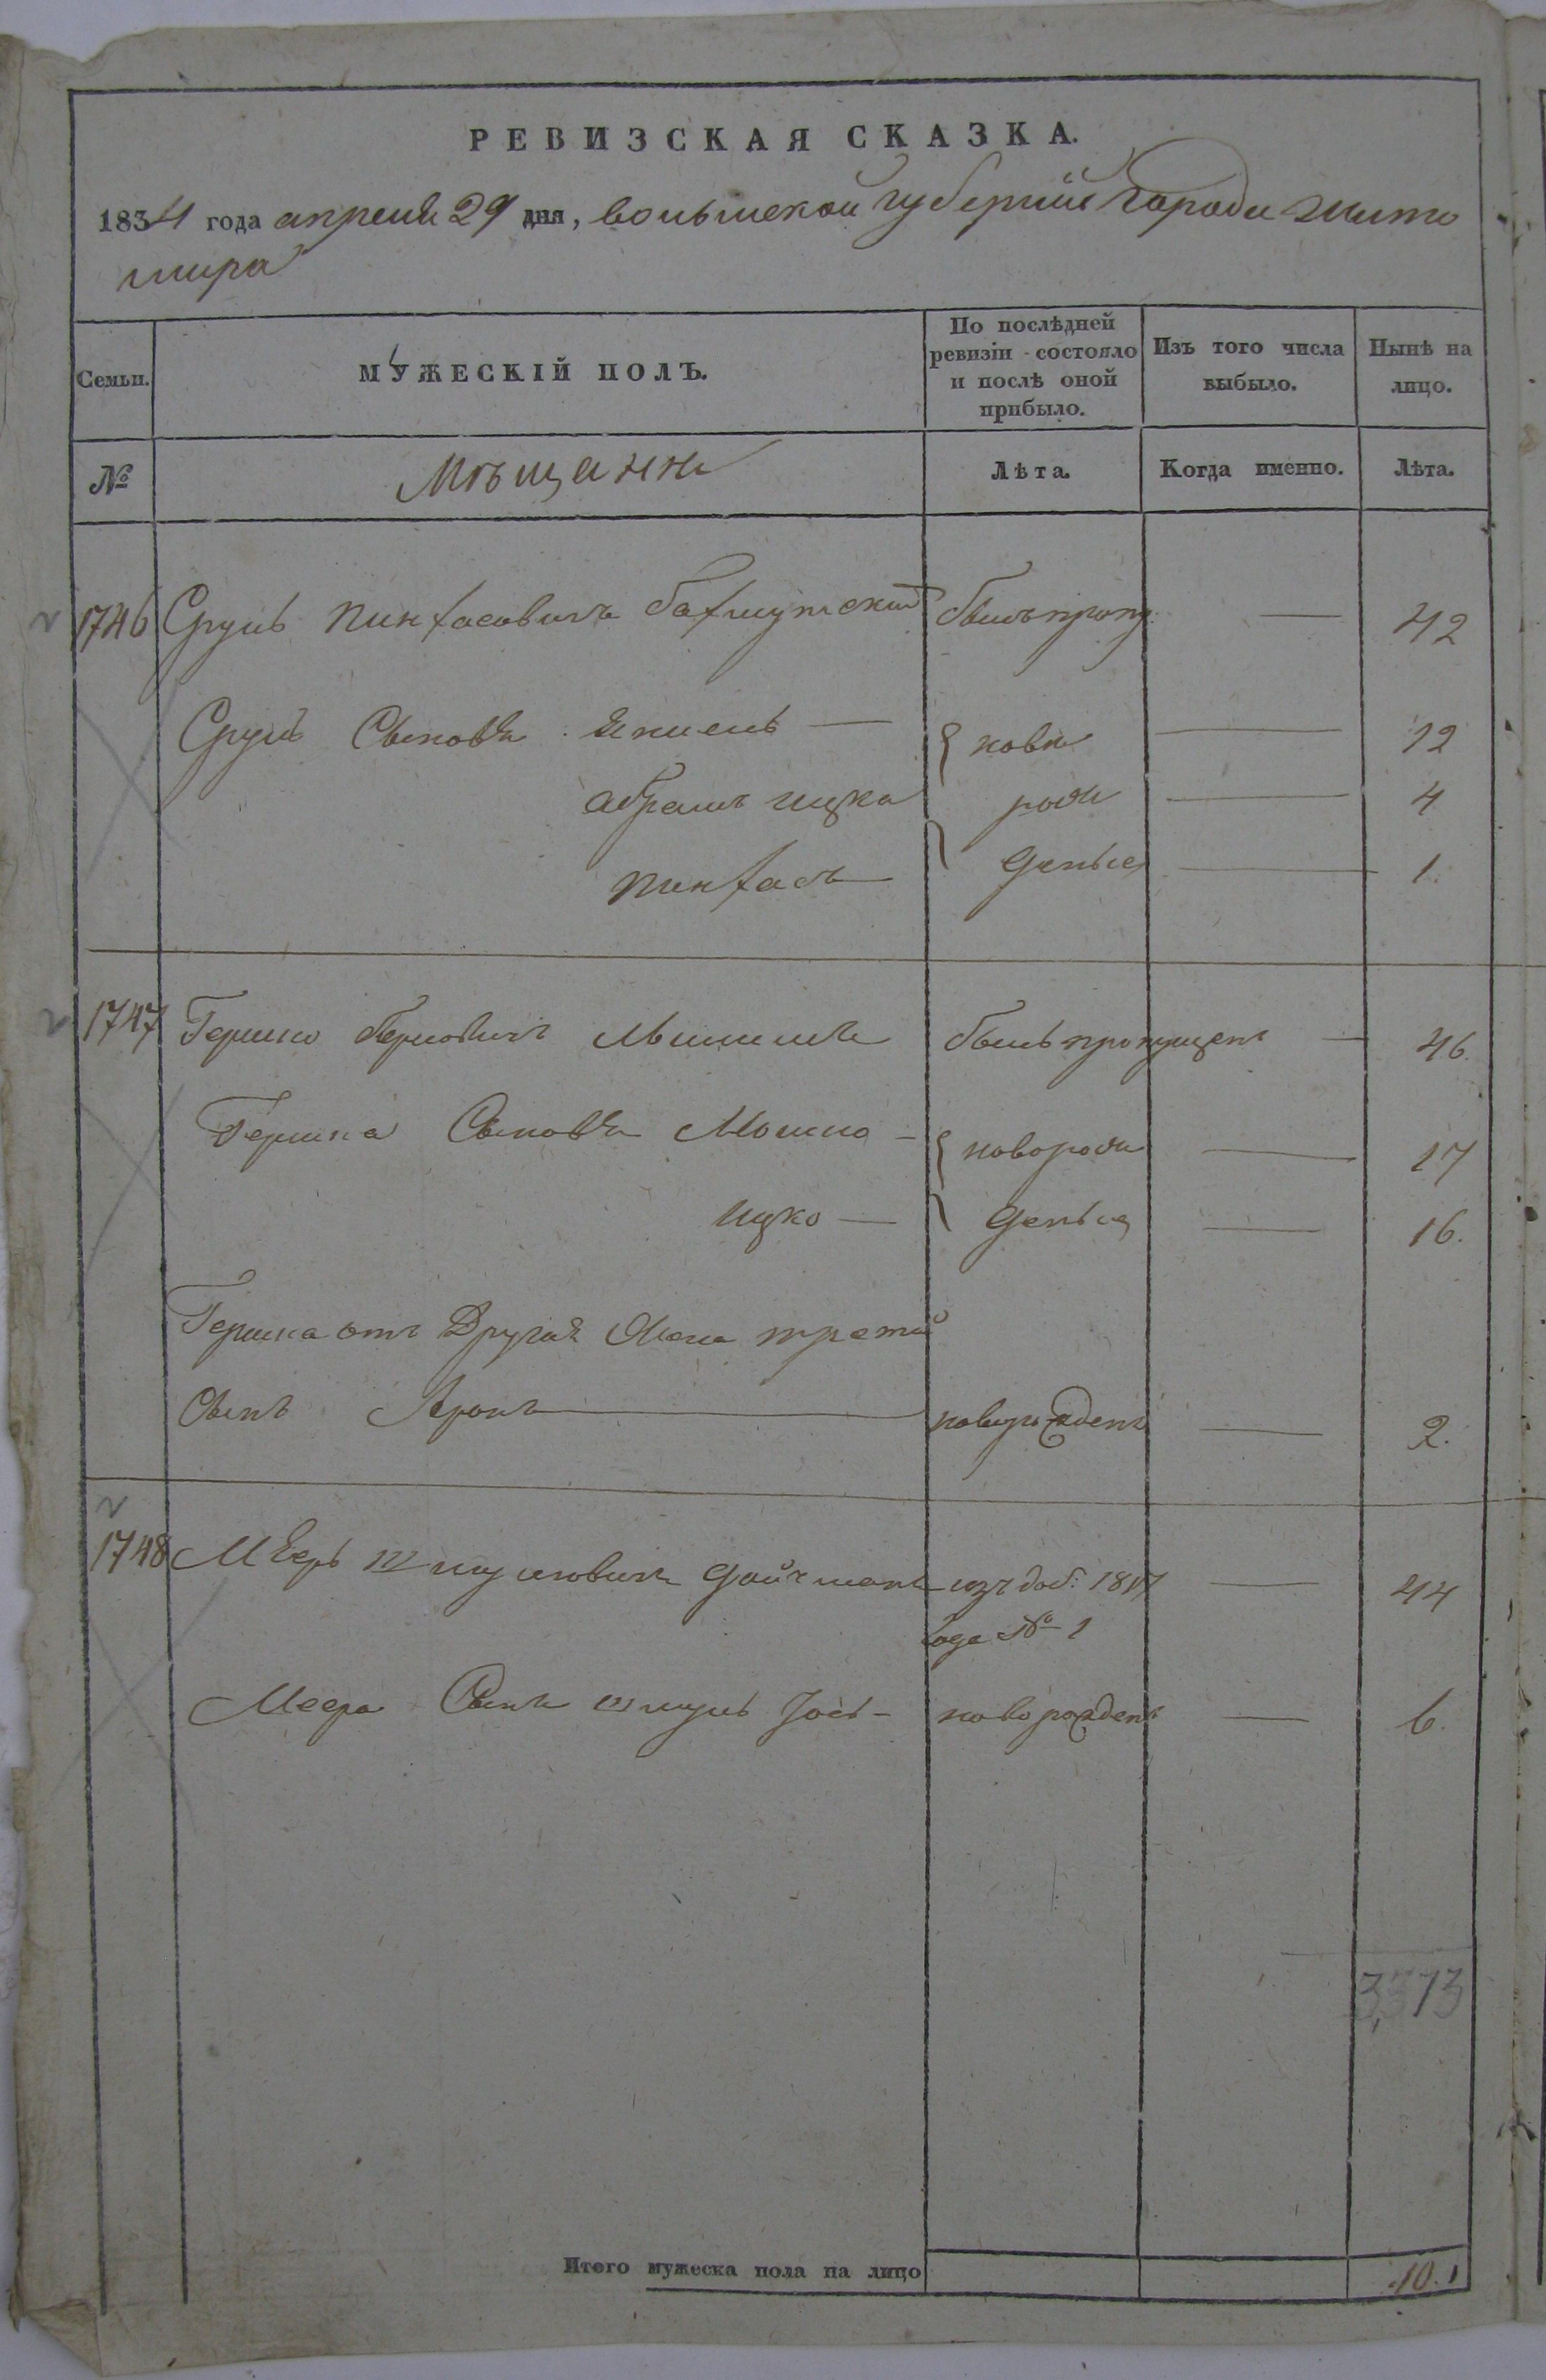 РЕВИЗСКАЯ СКАЗКА.
1834 года апреля 29 дня, волынской губернии города Жито
мира
Семьи. МУЖЕСКІЙ ПОЛЪ. По послѣдней ревизіи состояло и послѣ оной прибыло. Изъ того числа выбыло. Нынѣ на лицо.
№ Мѣщанни Лѣта. Когда именно. Лѣта.
1746 Сруль Пинхасовичъ Бахмутский былъ пропу: — 42
Сруля Сыновья Якиель — новo — 12
абрамъ ицко рож — 4
Пинхасъ — денные — 1.
1747 Гершко Берковичъ былъ пропущенъ — 46.
Гершка Сыновья Мошко — новорож — 17
ицко — денные — 16.
Гершка отъ Другой Жены третий
Сынъ Аронъ — новорожденъ — 2.
1748 Мѣеръ Шмулиовичъ дойчманъ изъ доб: 1817 — 44
года № 1
Меера Сынъ шмуль Іось — новорожденъ — 6.
3,373
Итого мужеска пола на лицо 10.